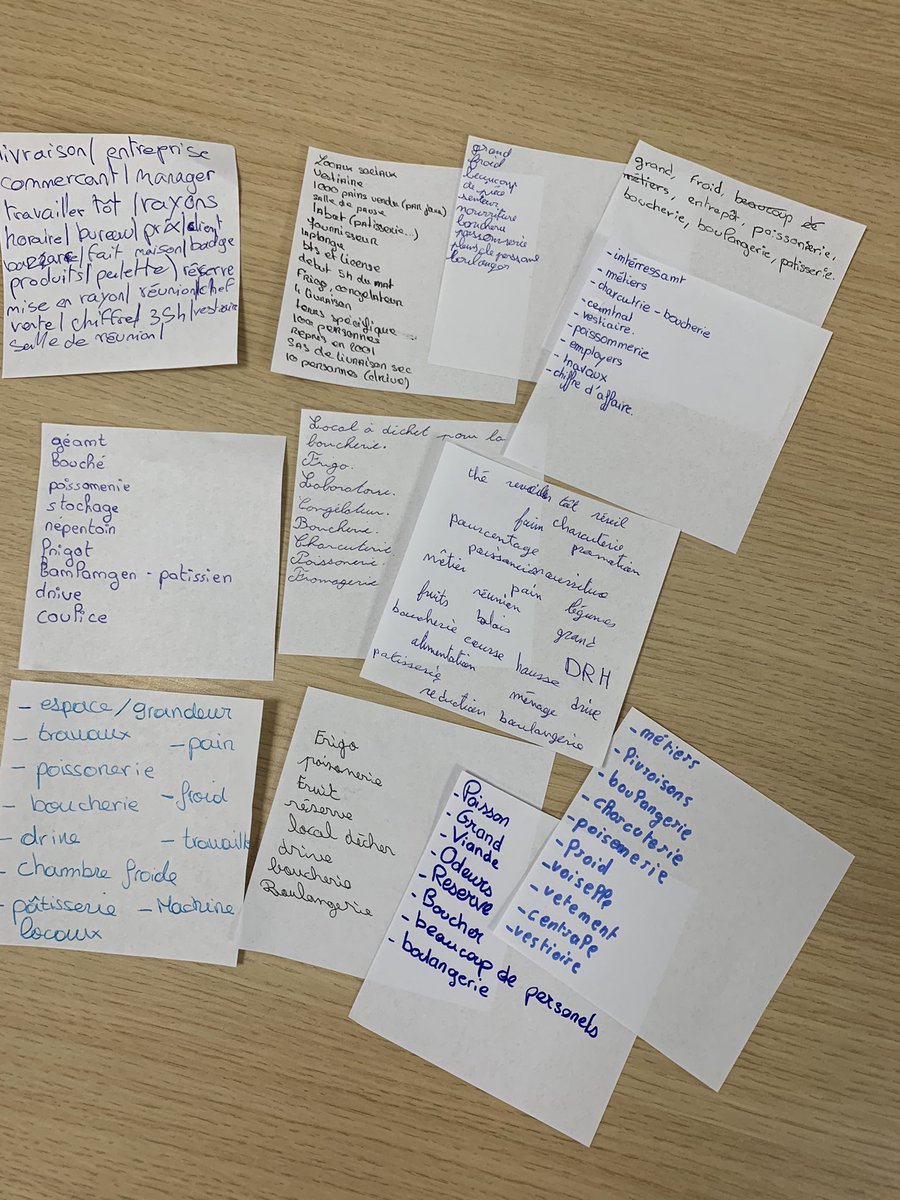 livraison/ entreprise
commerçant/ manager
travailler tôt /rayons
horaire/ bureau/ prix/client
fait maison/badge
produits/ palette/ réserve
mise en rayon/ réunion/chef
vente/ chiffre/ 35h/vestiaire
salle de réunion/
Locaux sociaux
Vestiaire
1000 pains vendu (par jour)
salle de pause
Inbat (patisserie...)
fournisseur
implange
bts et license
debut 5h du mat
Frigo, congelateur
4 livraison
tenus spécifique
100 personnes
Repris en 2001
SAS de livraison sec
10 personnes (drive)
grand
froid
beaucoup
de pièce
senteur
nourriture
boucherie
poissonnerie
plein de personne
boulanger
grand, froid, beaucoup de
métiers, entrepôt, poissonierie,
boucherie, boulangerie, patisserie.
- intérressant
- métiers
- charcutrie - boucherie
- central
- vestiaire.
- poissonnerie
- employers
- travaux
- chiffre d'affaire.
géant
Bouché
poissonerie
stockage
répentoin
frigot
- patissien
drive
coulice
Local à déchet pour la
boucherie.
Frigo.
Laboratoire.
Congélateur.
Boucherie.
Charcuterie.
Poissonerie.
Fromagerie
thé tôt réveil
faim charcuterie
pourcentage promotion
poissonerie
métier pain légumes
fruits réunion grand
boucherie balais DRH
alimentation course hausse drive
patisserie ménage
réduction boulangerie
- espace/grandeur
- travaux - pain
- poissonerie
- boucherie - froid
- drive - travaille
- chambre froide
- pâtisserie - Machine
locaux
Frigo
poissonerie
Fruit
réserve
local décher
drive
boucherie
Boulangerie
- Poisson
- Grand
- Viande
- Odeurs
- Reserve
- Boucher
- beaucoup de personels
- boulangerie
- métiers
- livraisons
- boulangerie
- charcuterie
- poisonerie
- froid
- voiselle
- vetement
- centrale
- vestiaire